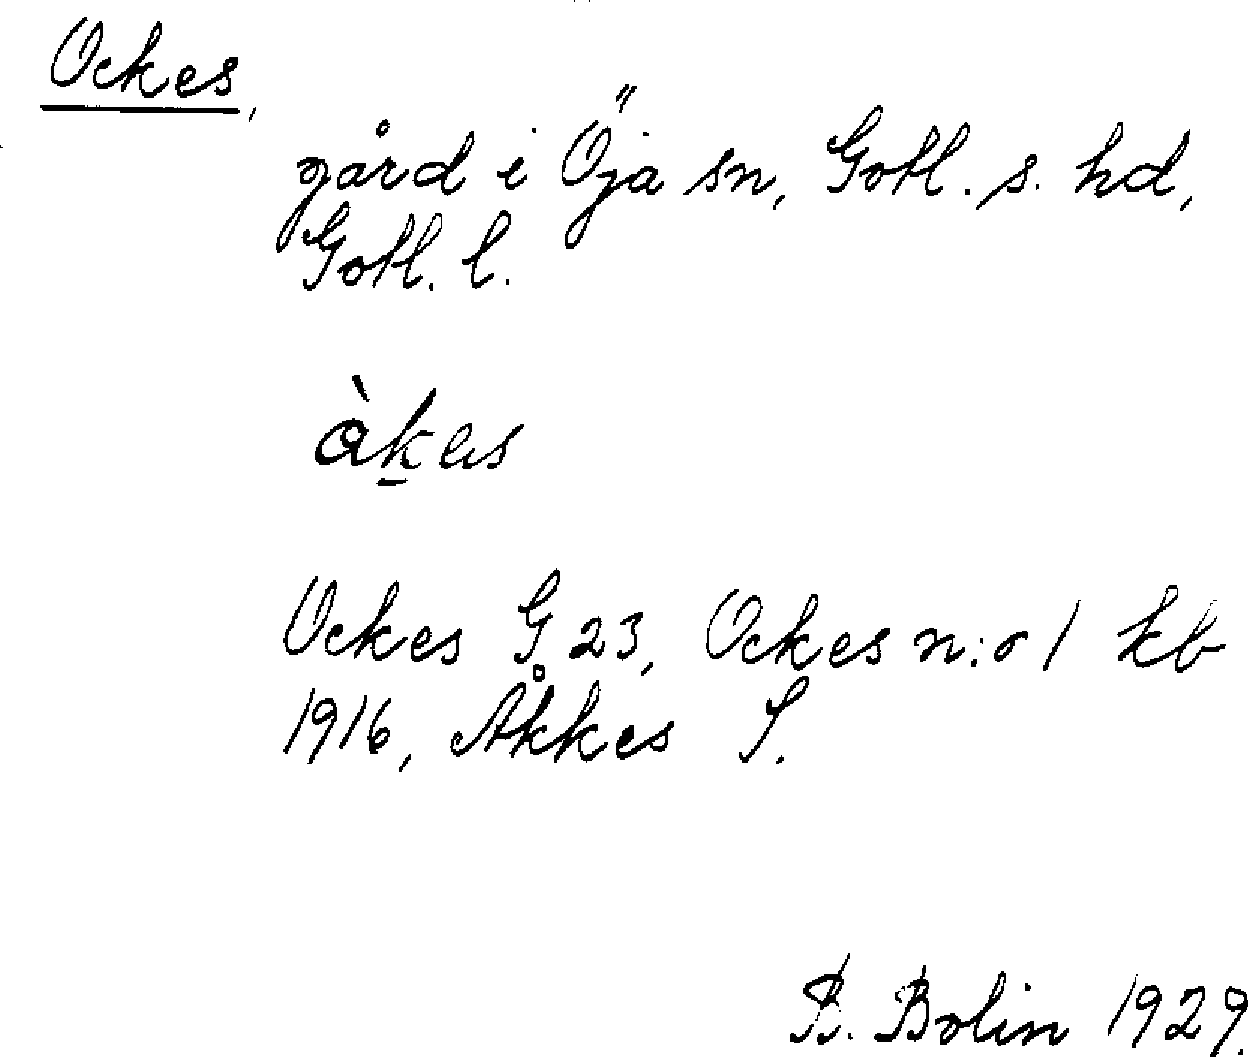 Ockes,
gård i Öja sn, Gotl. s. hd,
Gotl. l.
àk̲es
Ockes G 23, Ockes n:o 1 kb
1916, Åkkes S.
B. Bolin 1929.